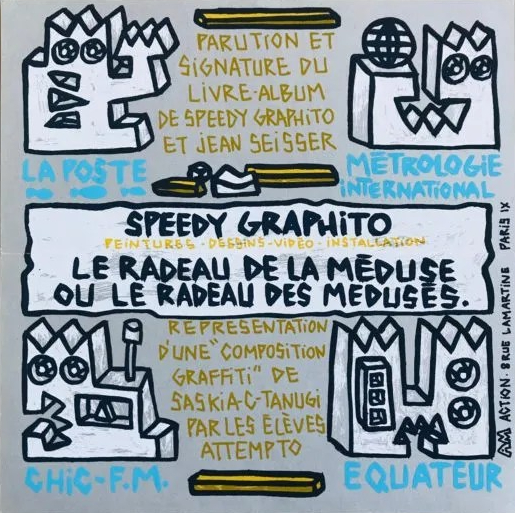 PARUTION ET
SIGNATURE DU
LIVRE-ALBUM
DE SPEEDY GRAPHITO
ET JEAN SEISSER
LA POSTE
MÉTROLOGIE
INTERNATIONAL
SPEEDY GRAPHITO
PEINTURES - DESSINS - VIDÉO - INSTALLATION
LE RADEAU DE LA MÉDUSE
OU LE RADEAU DES MEDUSÉS.
REPRESENTATION
D'UNE "COMPOSITION
GRAFFITI" DE
SASKIA-C-TANUGI
PAR LES ÉLÈVES
ATTEMPTO
CHIC-F.M.
EQUATEUR
ACTION. 8 RUE LAMARTINE PARIS IX